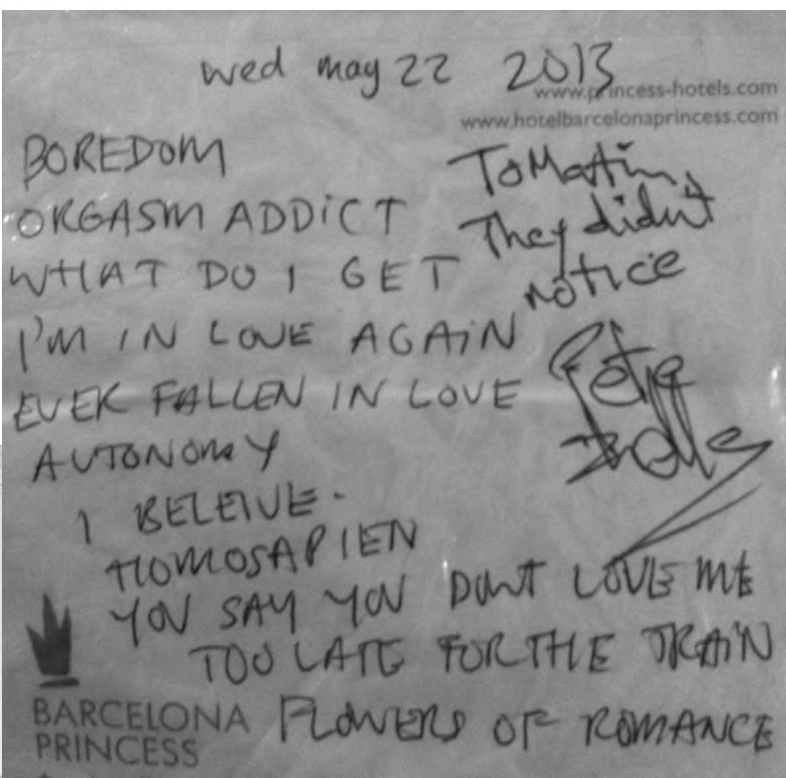 wed may 22 2013
www.princess-hotels.com
www.hotelbarcelonaprincess.com
BOREDOM
ORGASM ADDICT
WHAT DO I GET
I'M IN LOVE AGAIN
EVER FALLEN IN LOVE
AUTONOMY
I BELEIVE.
HOMOSAPIEN
YOU SAY YOU DONT LOVE ME
TOO LATE FOR THE TRAIN
FLOWERS OF ROMANCE
To Martin,
They didn't
notice
Pete
BARCELONA
PRINCESS